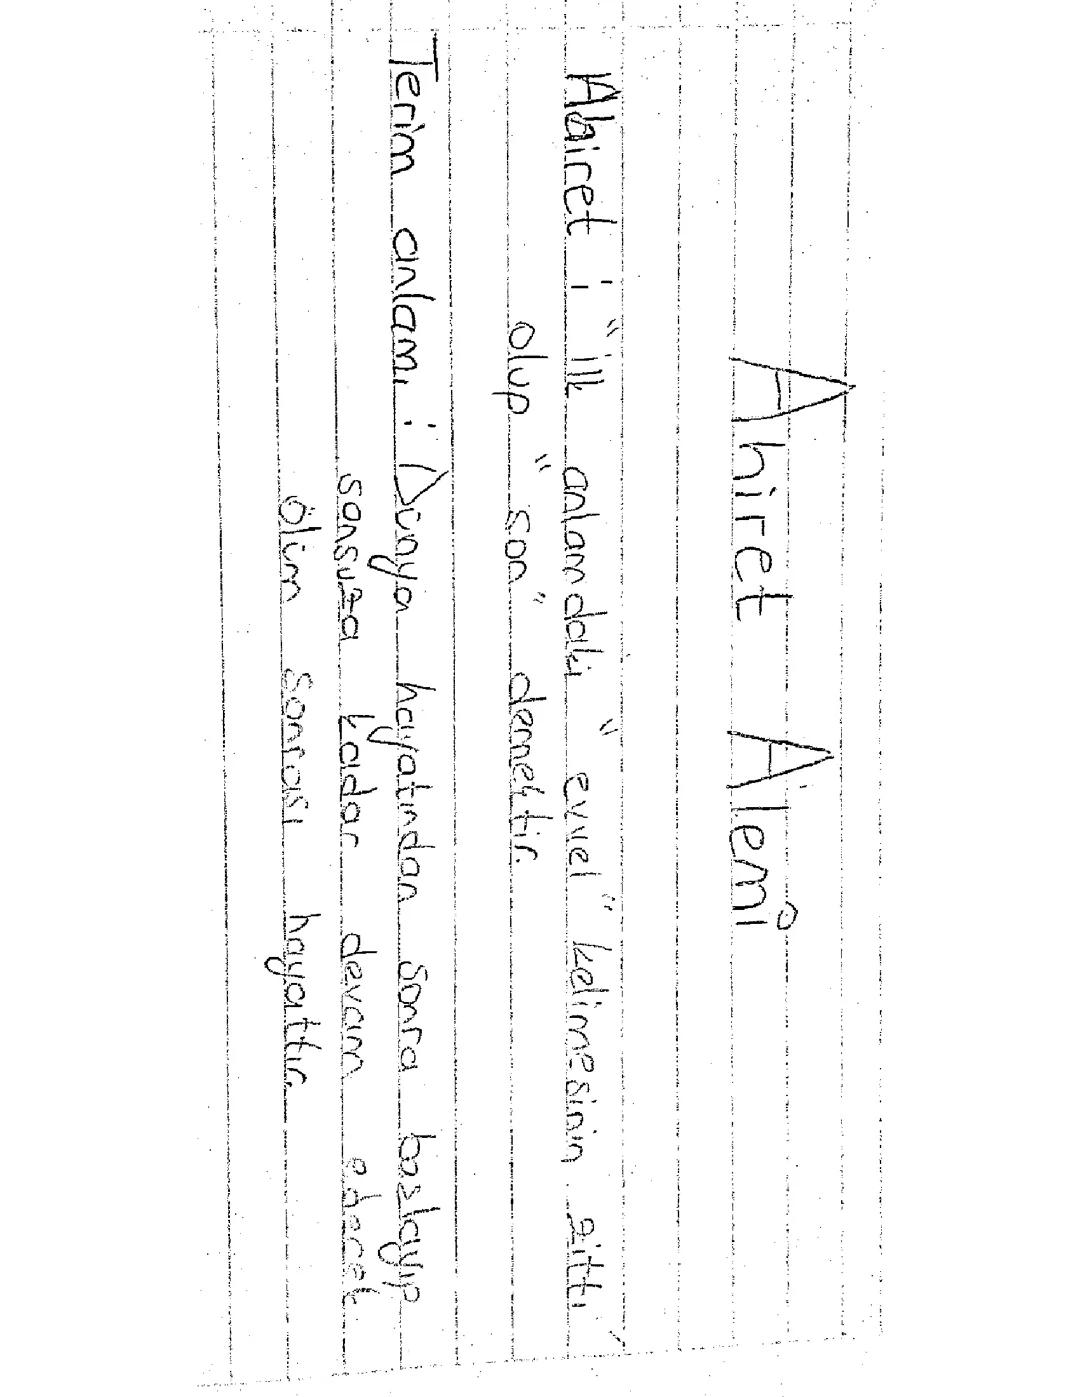 Ahiret Alemi
Ahiret : "ilk anlamdaki "evvel" kelimesinin zittı
olup "son" demektir.
Terim anlamı : Dünya hayatından sonra başlayıp
sonsuza kadar devam edecek
ölüm sonrası hayattır.